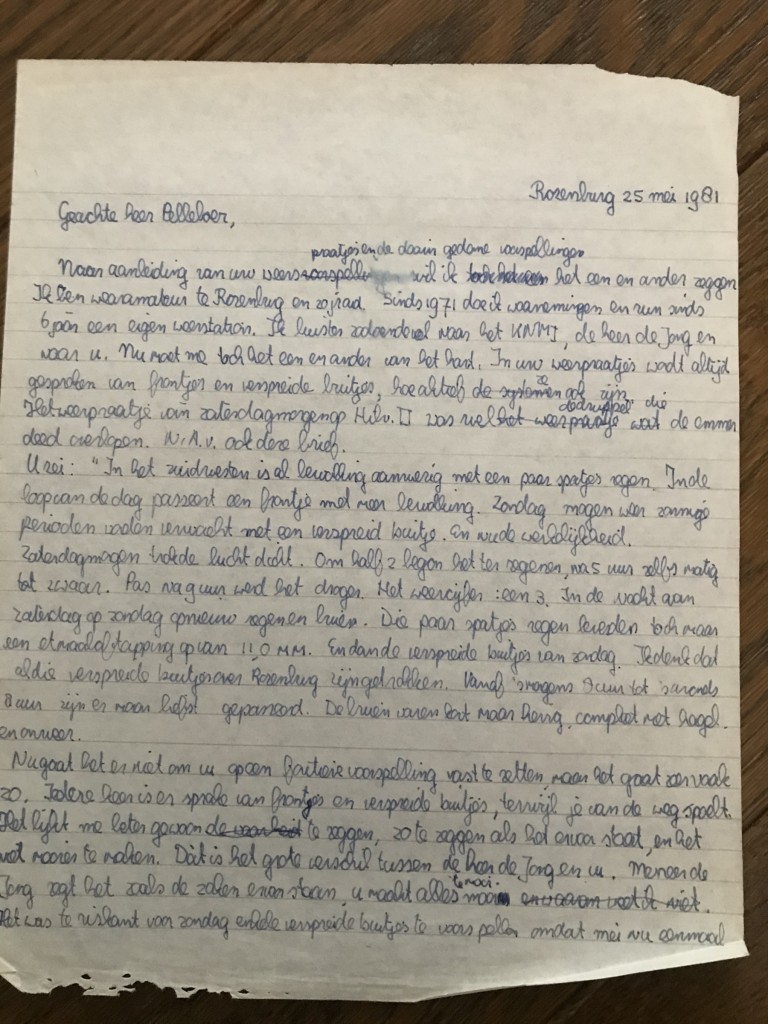 Rozenburg 25 mei 1981
Geachte heer Pelleboer,
praatjes en de daarin gedane voorspellingen
Naar aanleiding van uw weersvoorspellingen wil ik het een en ander zeggen
Ik ben weeramateur te Rozenburg en Sinds 1971 doe ik waarnemingen en run sinds
6 jaar een eigen weerstation. Ik luister naar het KNMI, de heer de Jong en
naar u. Nu moet me toch het een en ander van het hart. In uw weerpraatjes wordt altijd
gesproken van frontjes en verspreide buitjes, hoe actief de systemen ook zijn
de druppel die
Het weerpraatje van zaterdagmorgen op Hilv. II was wel het weerpraatje wat de emmer
deed overlopen. N.A.v. ook deze brief.
U zei: "In het zuidwesten is al bewolking aanwezig met een paar spatjes regen. In de
loop van de dag passeert een frontje met meer bewolking. Zondag mogen weer zonnige
perioden worden verwacht met een verspreid buitje. En nu de werkelijkheid.
Zaterdagmorgen trok de lucht dicht. Om half 2 begon het te regenen, na 5 uur zelfs matig
tot zwaar. Pas na 9 uur werd het droger. Het weercijfer: een 3. In de nacht van
zaterdag op zondag opnieuw regen en buien. Die paar spatjes regen leverden toch maar
een etmaalaftapping op van 11,0 MM. En dan de verspreide buitjes van zondag. Ik denk dat
al die verspreide buitjes over Rozenburg zijn getrokken. Vanaf 's morgens 9 uur tot 's avonds
8 uur zijn er maar liefst gepasseerd. De buien waren kort maar hevig, compleet met hagel
en onweer.
Nu gaat het er niet om u op een foutieve voorspelling vast te zetten, maar het gaat zo vaak
zo. Iedere keer is er sprake van frontjes en verspreide buitjes, terwijl je van de weg spoelt.
Het lijkt me beter gewoon de waarheid te zeggen, zo te zeggen als het ervoor staat, en het
niet mooier te maken. Dàt is het grote verschil tussen de heer de Jong en u. Meneer de
Jong zegt het zoals de zaken ervoor staan, u maakt alles te mooi. en waarom weet ik niet.
Het was te riskant voor zondag enkele verspreide buitjes te voorspellen omdat mei nu eenmaal